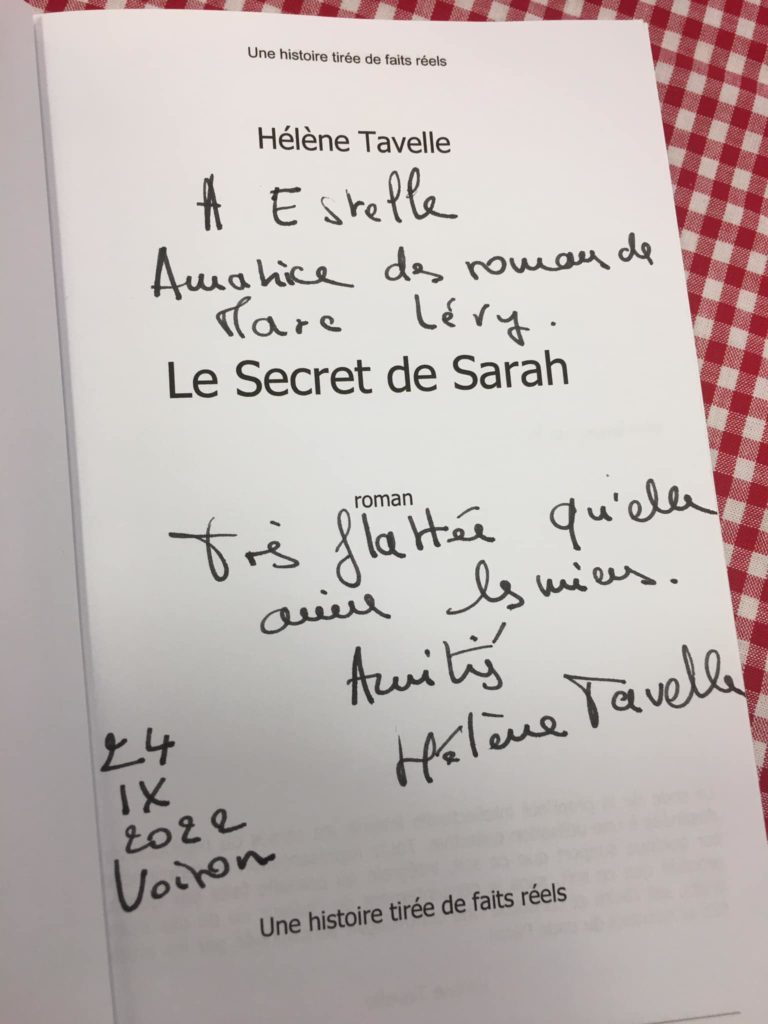 Une histoire tirée de faits réels
Hélène Tavelle
A Estelle
Amatrice des roman de
Marc Lévy.
Le Secret de Sarah
roman
Très flattée qu'elle
aime les miens.
Amitiés
Hélène Tavelle
24
IX
2022
Voiron
Une histoire tirée de faits réels